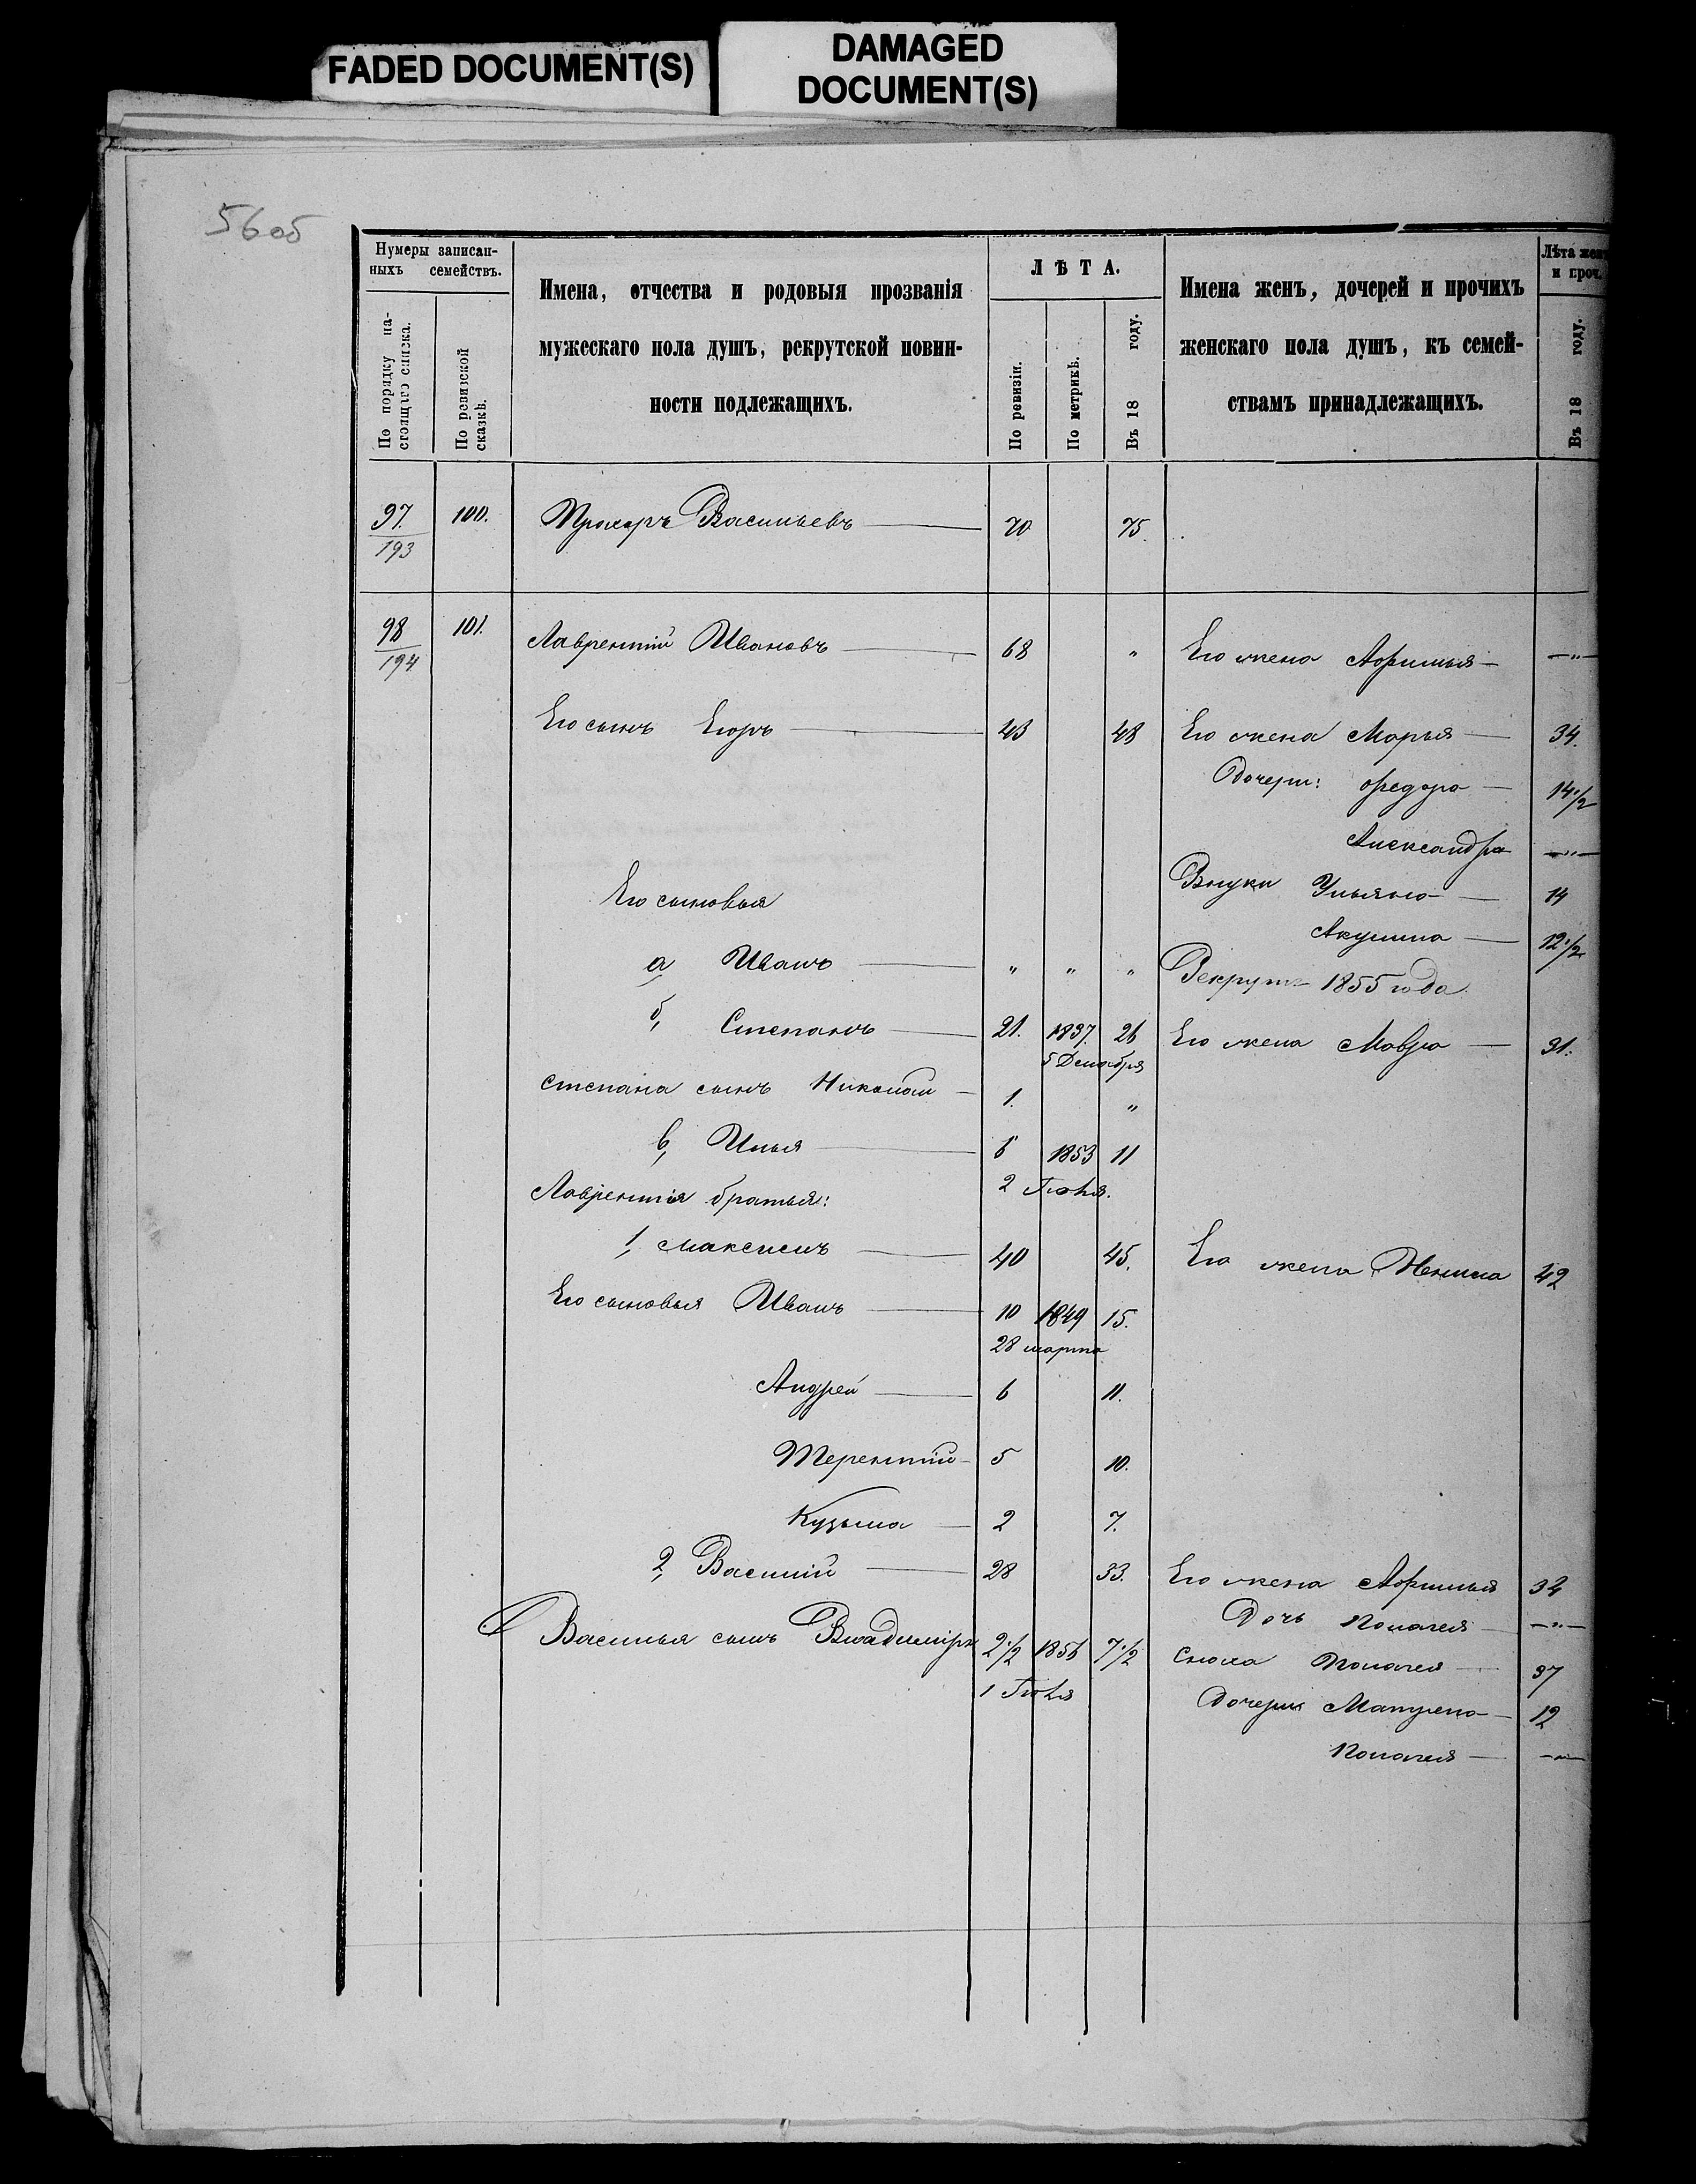 FADED DOCUMENT(S)
DAMAGED
DOCUMENT(S)
56 об
Нумеры записан-
ныхъ семействъ.
По порядку на-
стоящаго списка.
По ревизской
сказкѣ.
Имена, отчества и родовыя прозванія
мужескаго пола душъ, рекрутской повин-
ности подлежащихъ.
ЛѢТА.
По ревизіи.
По метрикѣ.
Въ 18 году.
Имена женъ, дочерей и прочихъ
женскаго пола душъ, къ семей-
ствамъ принадлежащихъ.
Лѣта жен
и проч.
Въ 18 году.
97. 100. Прохоръ Васильевъ — 70 75.
193
98 101. Лаврентій Ивановъ — 68 " Его жена Афимья — "
194
Его сынъ Егоръ — 43 48 Его жена Марья — 34.
Дочери: Федора — 14 1/2
Александра — "
Его сыновья Внуки Ульяна — 14
Акулина — 12 1/2
а, Иванъ — " " " Рекрутъ 1855 года
б, Степанъ — 21. 1837. 26 Его жена Мавра — 31.
5 Декабря
Степана сынъ Николай — 1. "
в, Илья — 6 1853 11
2 Іюля.
Лаврентія братья:
1, Максимъ — 40 45. Его жена Ненила 42
Его сыновья Иванъ — 10 1849 15.
28 марта
Андрей — 6 11.
Терентій — 5 10.
Кузьма — 2 7.
2, Василій — 28 33. Его жена Афимья 32
Дочь Пелагея — "
Василья сынъ Владиміръ 2 1/2 1856 7 1/2 Сноха Пелагея — 37
1 Іюля
Дочери Матрена — 12
Пелагея — "